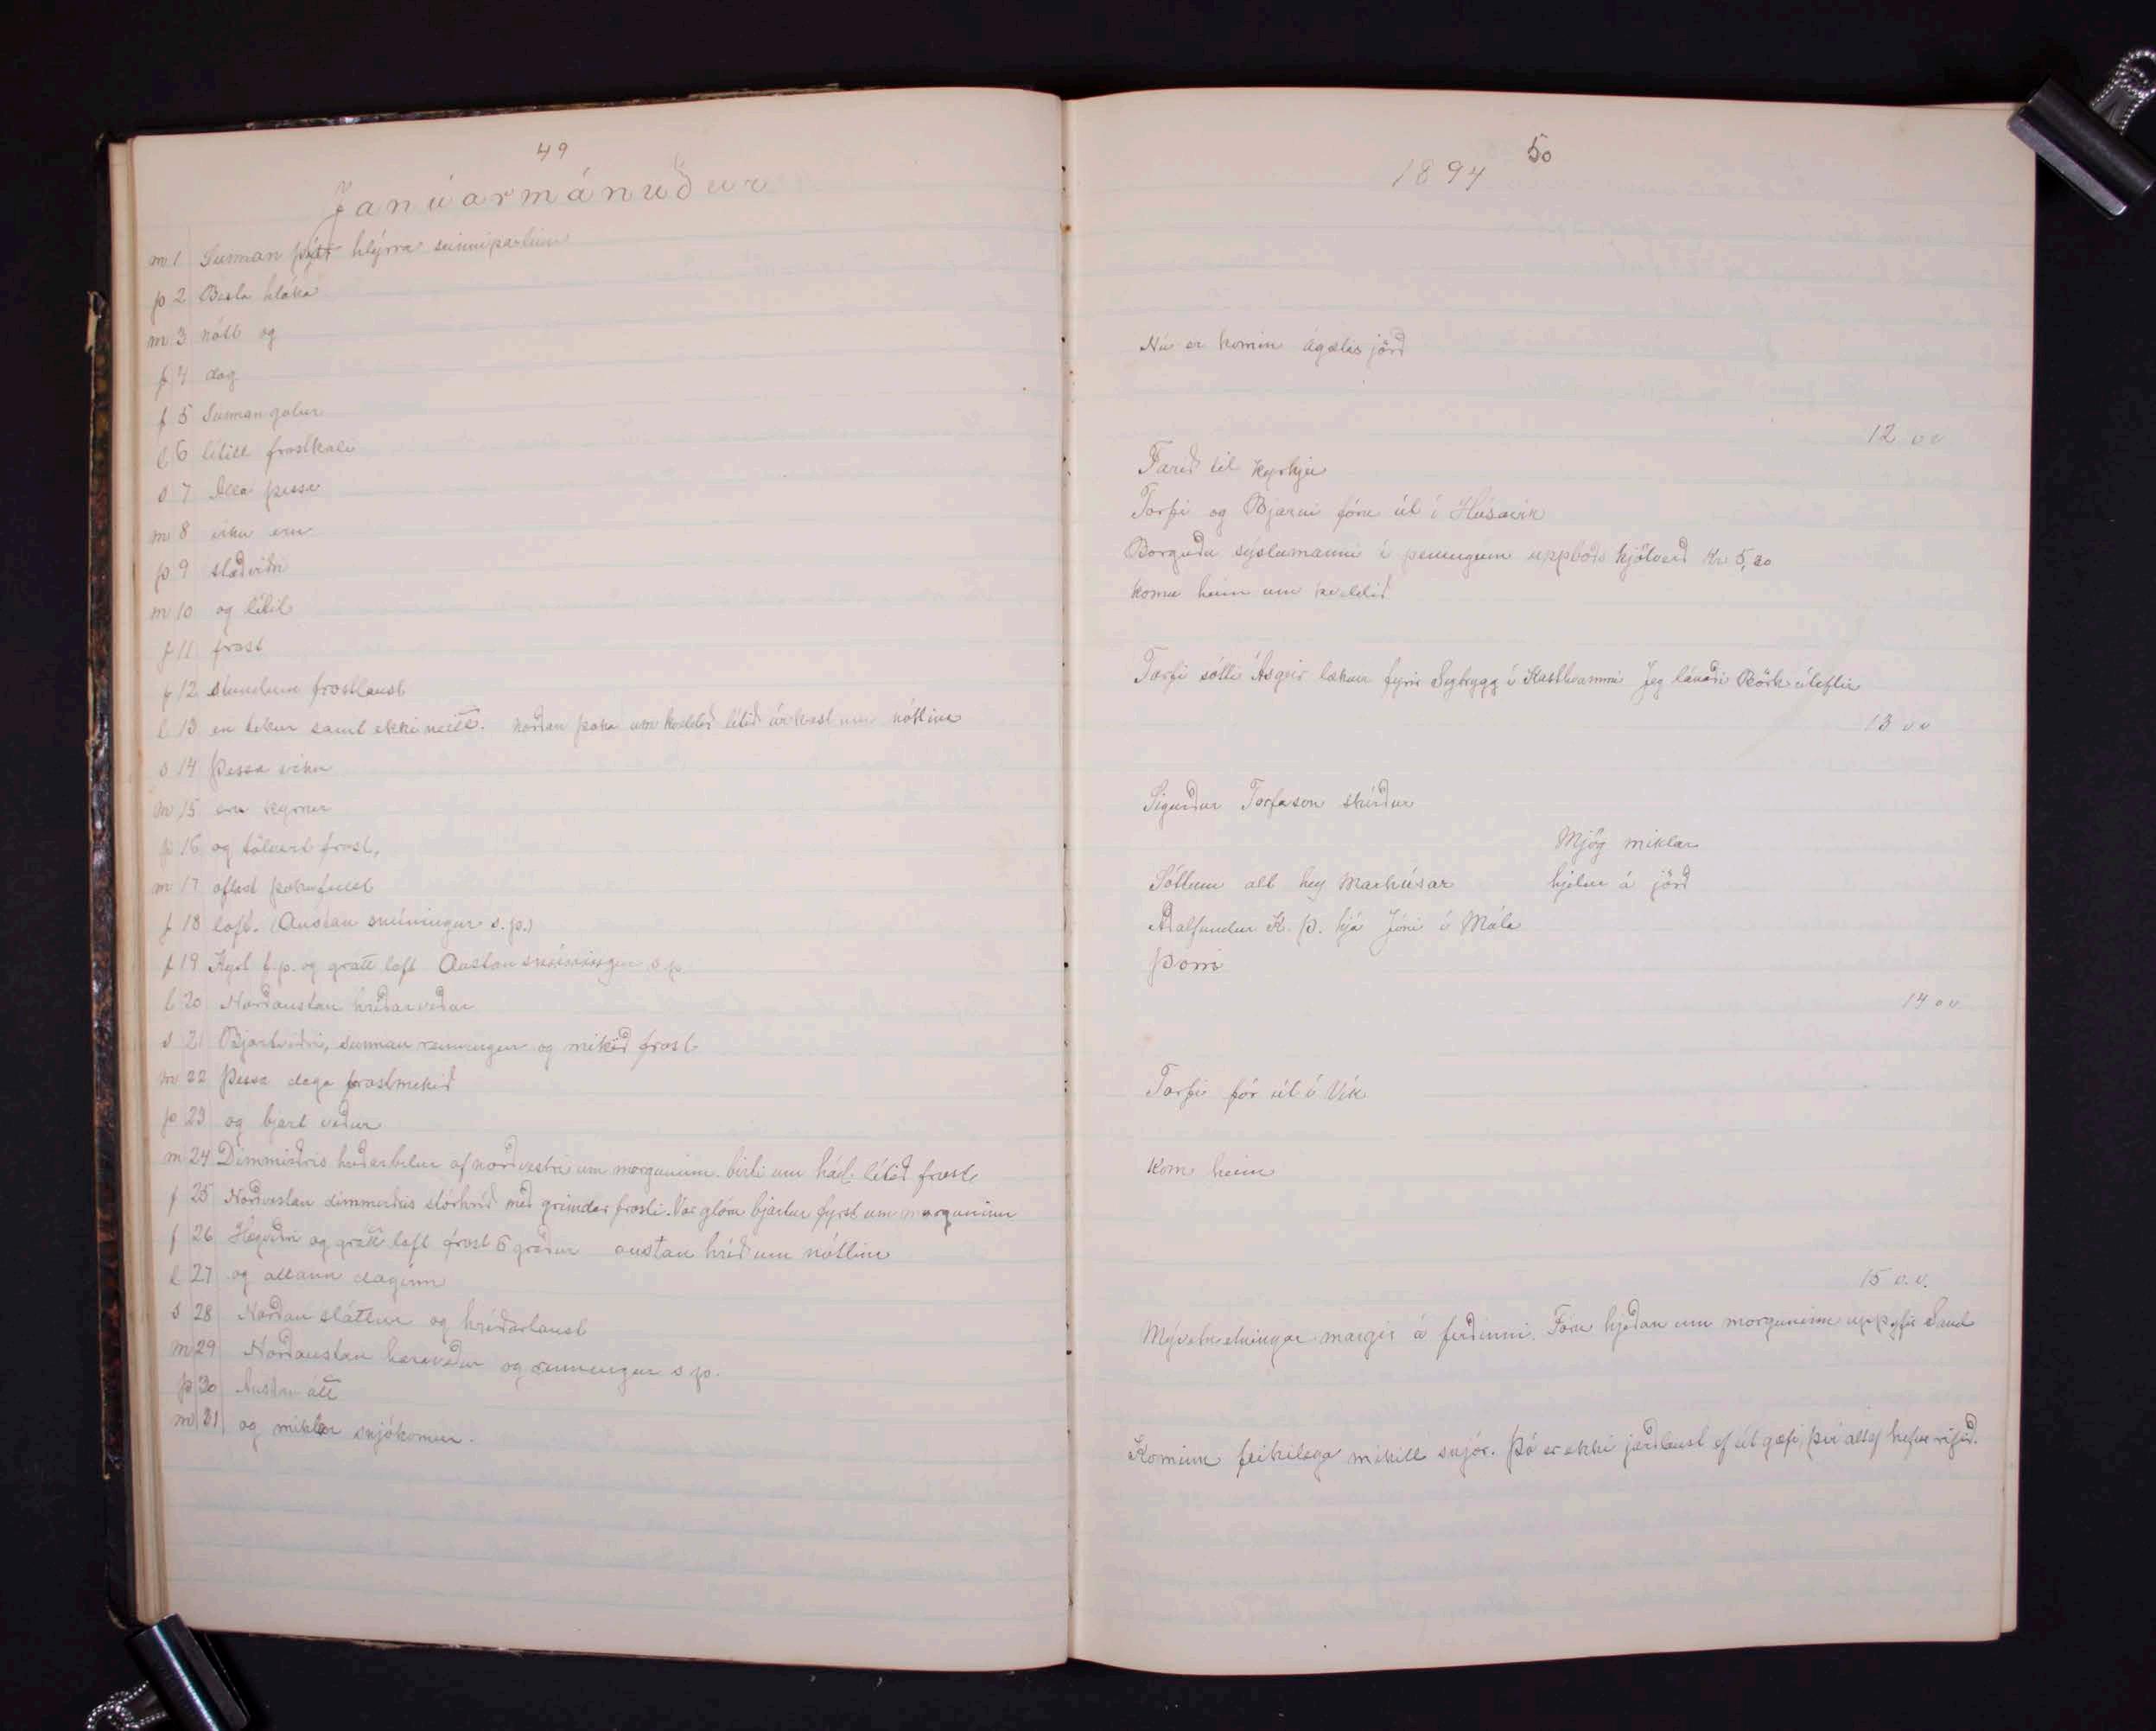 49
Janúarmánuður
m 1 Sunnan hlýrra seinnipartinn
þ 2 Besta hláka
m 3 nótt og
f 4 dag
f 5 Sunnan golur
l 6 lítill frostkali
s 7 Alla þessa
m 8 viku eru
þ 9 staðviðri
m 10 og lítil
f 11 frost
f 12 stundum frostlaust
l 13 en tekur samt ekki neitt. norðan þoka um kveldið lítið úrkast um nóttina
s 14 þessa viku
m 15 eru kyrrur
þ 16 og tölvert frost,
m 17 oftast þokufullt
f 18 loft. (Austan snúningur s.p.)
f 19 Kyrt f.p. og grátt loft Austan snúningur s.p
l 20 Norðaustan hríðarveður
s 21 Bjartviðri, sunnan renningur og mikið frost
m 22 þessa daga frostmikið
þ 23 og bjart veður
m 24 Dimmviðris hríðarbilur af norðvestri um morguninn. birti um hád. lítið frost
f 25 Norðvestan dimmviðris stórhríð með grimdar frosti. Var glóru bjartur fyrst um morguninn
f 26 Hægviðri og grátt loft frost 6 gráður austan hríð um nóttina
l 27 og allann daginn
s 28 Norðan sláttur og hríðarlaust
m 29 Norðaustan og renningur s.p.
þ 30 Austan átt
m 31 og miklar snjókomur.
1894 50
Nú er komin ágætis jörð
12 v v
Farið til kyrkju
Torfi og Bjarni fóru út í Húsavík
Borguðu sýslumanni í peningum uppboðs kjötverð Kr 5,20
komu heim um kveldið
Torfi sótti Ásgeir læknir fyrir Sigtrygg í Kasthvammi Jeg lánaði Börk úteftir
13 v v
Sigurður Torfason skírður
Mjög miklar
Sóttum alt hey Marhúsar hjelur á jörð
Aðalfundur K. Þ. hjá Jóni í Múla
Þorri
14 v v
Torfi fór út í Vík
Kom heim
15 v.v.
Mývetnetningar margir á ferðinni. Fóru hjeðan um morguninn uppyfir Sand
Kominn feikilega mikill snjór. Þó er ekki jarðlaust ef út gæfi, því altaf hefur rifið.